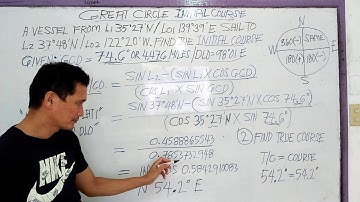 GREAT CIRCLE INITIAL COURSE
A VESSEL FROM L1 35°27'N / LO1 139°39'E SAIL TO
L2 37°48'N / LO2 122°20'W. FIND THE INITIAL COURSE
GIVEN: GCD = 74.6° OR 4476 MILES / DLO = 98°01'E
SIN L2 - (SIN L1 X COS GCD)
(COS L1 X SIN GCD)
SIN 37°48'N - (SIN 35°27'N X COS 74.6°)
(COS 35°27'N X SIN 74.6°)
LAT 1
DLO
= 0.4588865543
0.7853732948
= INV COS 0.5842910083
N 54.2° E
② FIND TRUE COURSE
T/C = COURSE
54.2° = 54.2°
N
360(-)
SAME
W
E
180(+)
180(-)
S
NIKE